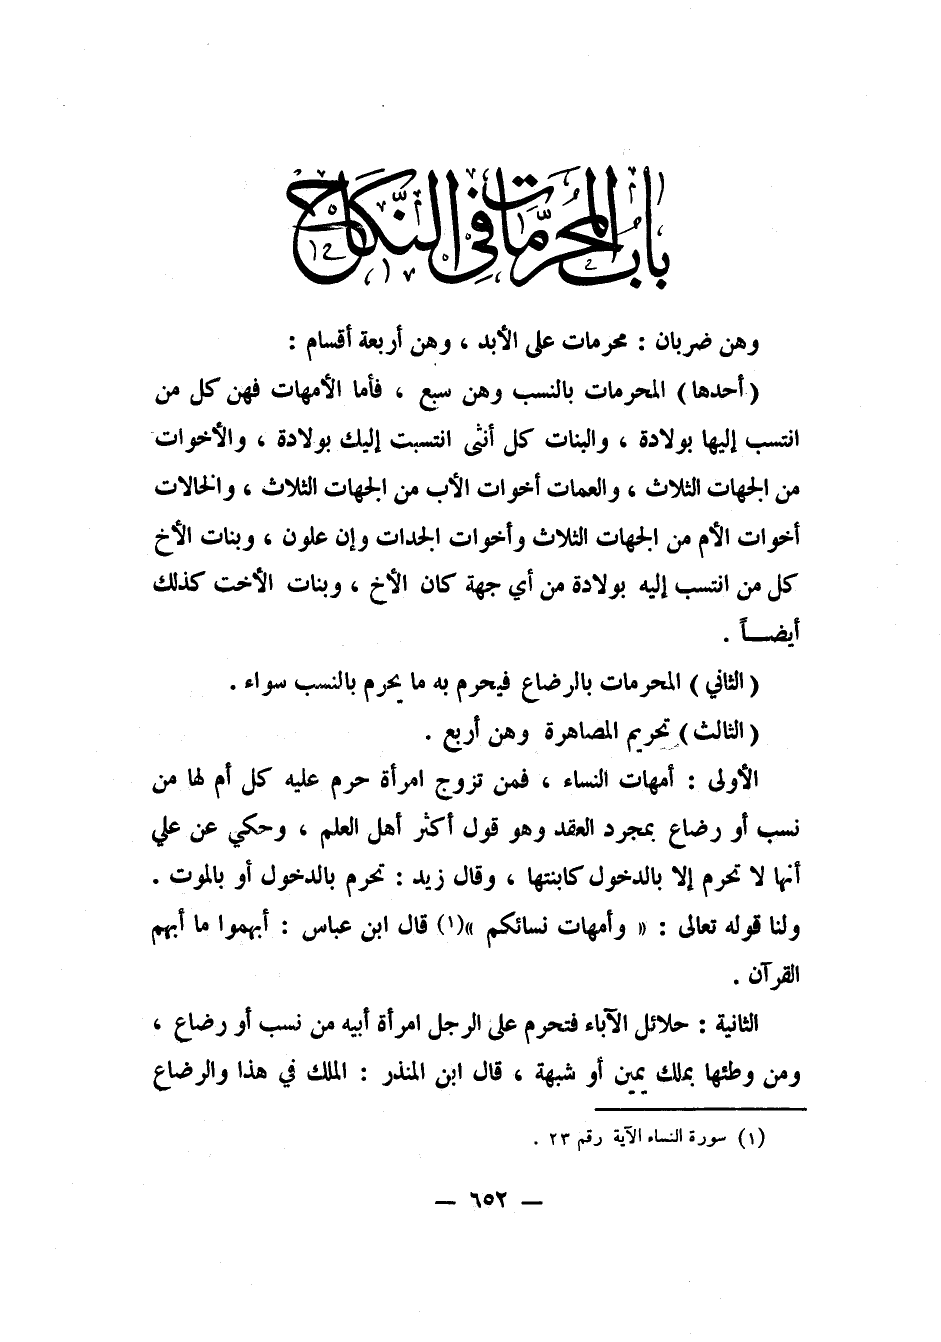 باب المحرمات في النكاح
وهن ضربان : محرمات على الأبد ، وهن أربعة أقسام :
( أحدها ) المحرمات بالنسب وهن سبع ، فأما الأمهات فهن كل من
انتسب إليها بولادة ، والبنات كل أنثى انتسبت إليك بولادة ، والأخوات
من الجهات الثلاث ، والعمات أخوات الأب من الجهات الثلاث ، والخالات
أخوات الأم من الجهات الثلاث وأخوات الجدات وإن علون ، وبنات الأخ
كل من انتسب إليه بولادة من أي جهة كان الأخ ، وبنات الأخت كذلك
أيضـاً .
( الثاني ) المحرمات بالرضاع فيحرم به ما يحرم بالنسب سواء .
( الثالث ) تحريم المصاهرة وهن أربع .
الأولى : أمهات النساء ، فمن تزوج امرأة حرم عليه كل أم لها من
نسب أو رضاع بمجرد العقد وهو قول أكثر أهل العلم ، وحكي عن علي
أنها لا تحرم إلا بالدخول كابنتها ، وقال زيد : تحرم بالدخول أو بالموت .
ولنا قوله تعالى : « وأمهات نسائكم »(١) قال ابن عباس : أبهموا ما أبهم
القرآن .
الثانية : حلائل الآباء فتحرم على الرجل امرأة أبيه من نسب أو رضاع ،
ومن وطئها بملك يمين أو شبهة ، قال ابن المنذر : الملك في هذا والرضاع
(١) سورة النساء الآية رقم ٢٣ .
— ٦٥٢ —